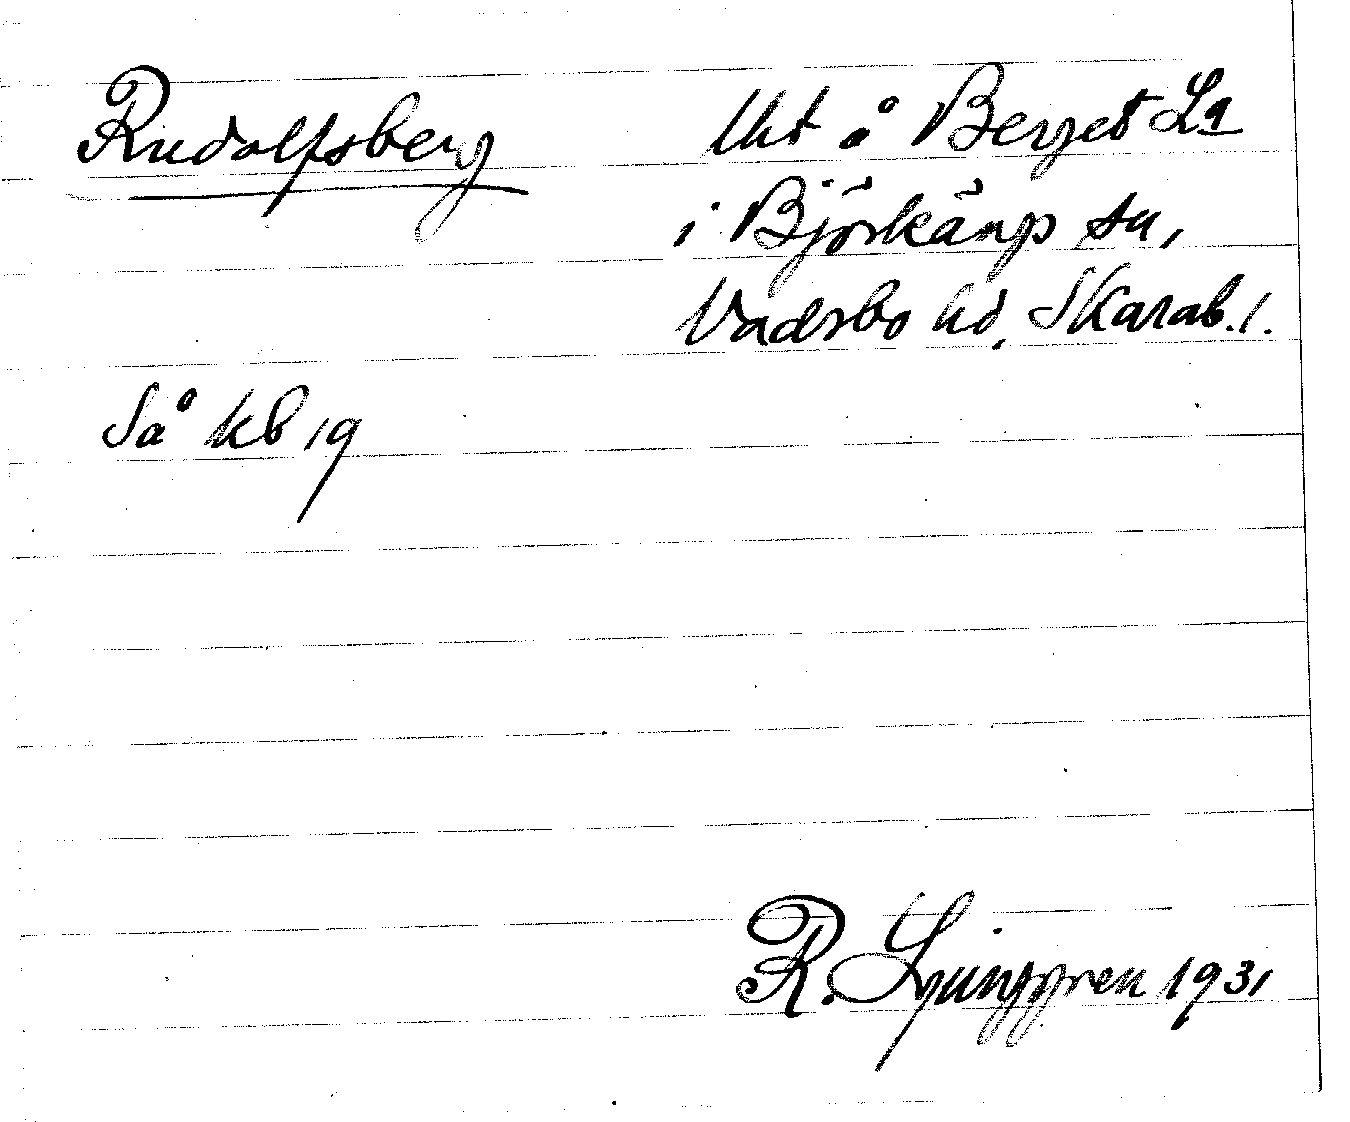 Rudolfsberg
Uht å Berget La
i Björkäng sn,
Vadsbo hd, Skarab. l.
Så kb 19
R. Ljunggren 1931